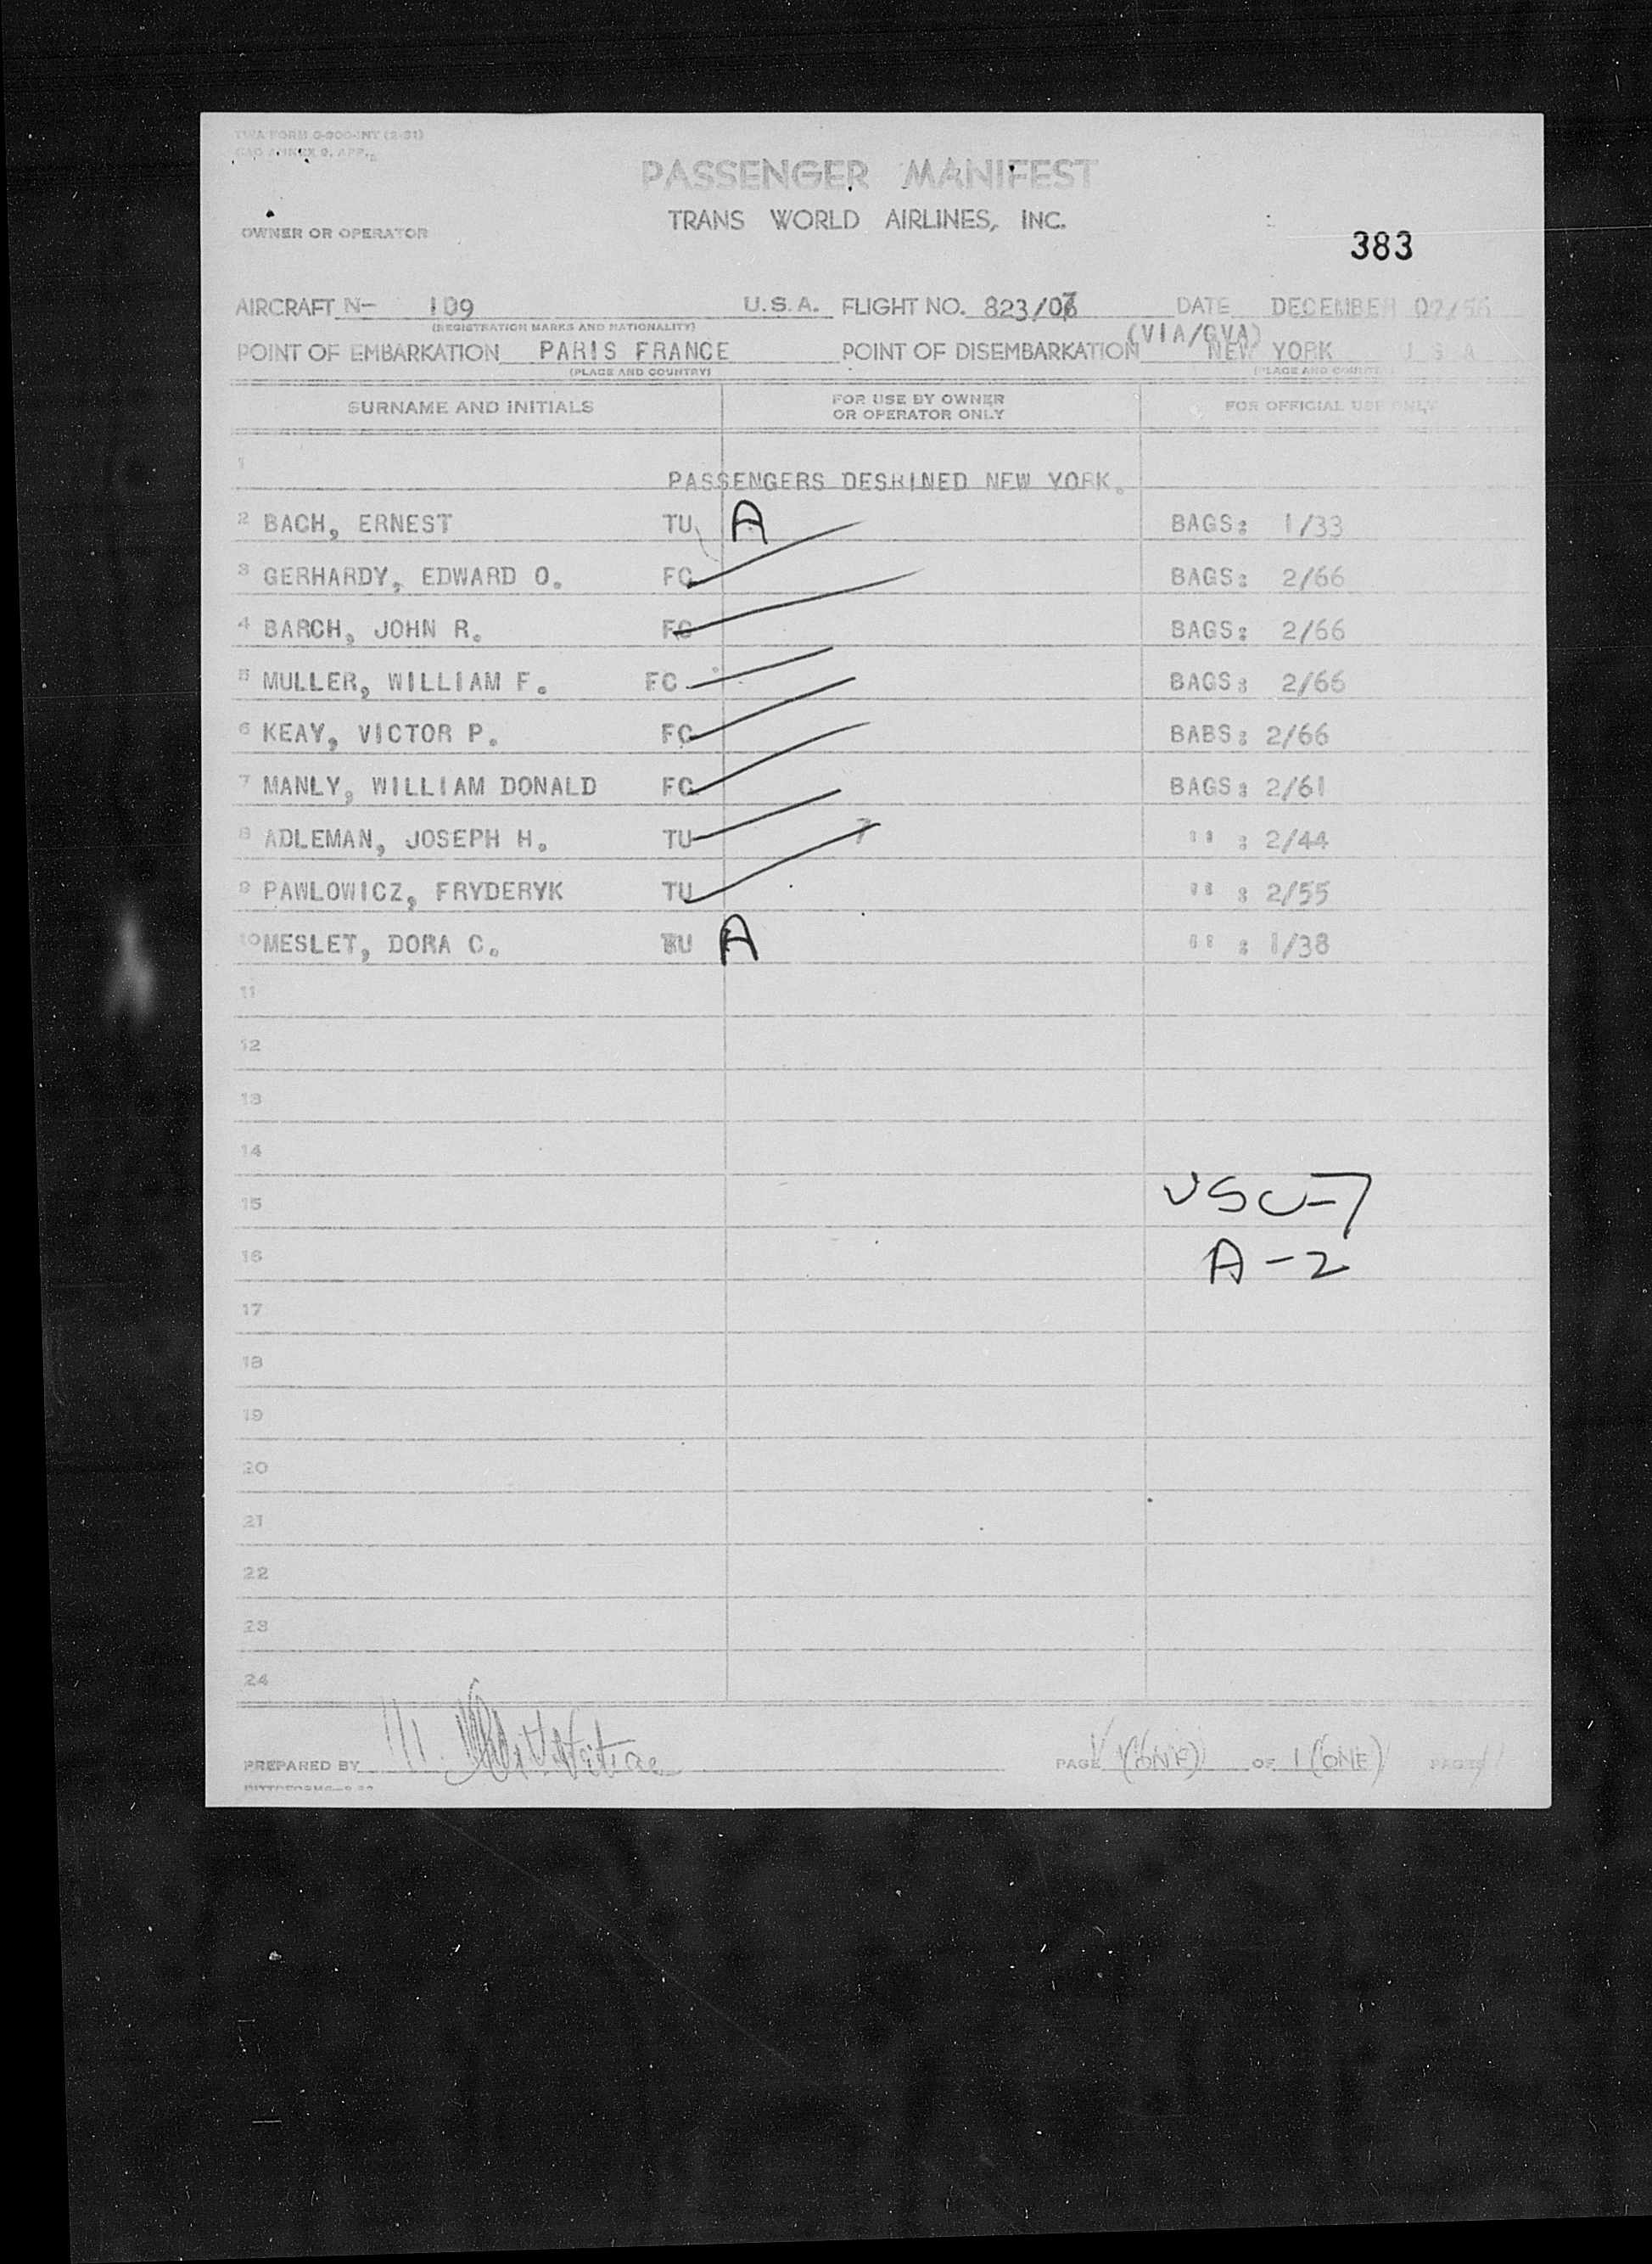 TWA FORM O-800-INT (2-51)
ICAO ANNEX 9, APP.
PASSENGER MANIFEST
TRANS WORLD AIRLINES, INC.
OWNER OR OPERATOR
383
AIRCRAFT N- 109 U.S.A. FLIGHT NO. 823/07 DATE DECEMBER 07/56
(REGISTRATION MARKS AND NATIONALITY)
(VIA/GVA)
POINT OF EMBARKATION PARIS FRANCE POINT OF DISEMBARKATION NEW YORK U S A
(PLACE AND COUNTRY) (PLACE AND COUNTRY)
SURNAME AND INITIALS FOR USE BY OWNER OR OPERATOR ONLY FOR OFFICIAL USE ONLY
1 PASSENGERS DESHINED NEW YORK.
2 BACH, ERNEST TU A BAGS: 1/33
3 GERHARDY, EDWARD O. FC BAGS: 2/66
4 BARCH, JOHN R. FC BAGS: 2/66
5 MULLER, WILLIAM F. FC BAGS: 2/66
6 KEAY, VICTOR P. FC BABS: 2/66
7 MANLY, WILLIAM DONALD FC BAGS: 2/61
8 ADLEMAN, JOSEPH H. TU 7 " : 2/44
9 PAWLOWICZ, FRYDERYK TU " : 2/55
10 MESLET, DORA C. TU A " : 1/38
11
12
13
14
15 USC-7
16 A-2
17
18
19
20
21
22
23
24
PREPARED BY PAGE 1 (ONE) OF 1 (ONE) PAGE